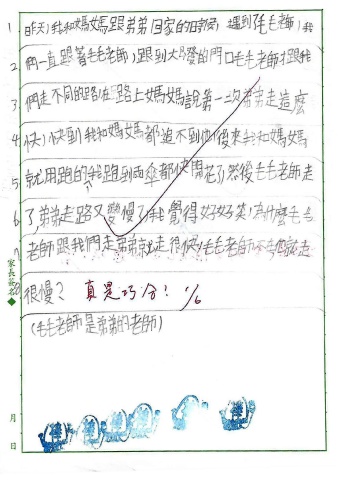 1 昨天我和媽媽跟弟弟回家的時候,遇到毛毛老師,我
2 們一直跟著毛毛老師,跟到大發的門口毛毛老師才跟我
3 們走不同的路,在路上媽媽說第一次看弟弟走這麼
4 快,快到我和媽媽都追不到他後來我和媽媽
5 就用跑的我跑到雨傘都快開花了然後毛毛老師走
6 了,弟弟走路又變慢了我覺得好好笑,為什麼毛毛
7 老師跟我們走弟弟就走很快,毛毛老師不走
很慢? 真是巧合!
(毛毛老師是弟弟的老師)
家長簽名
月
日